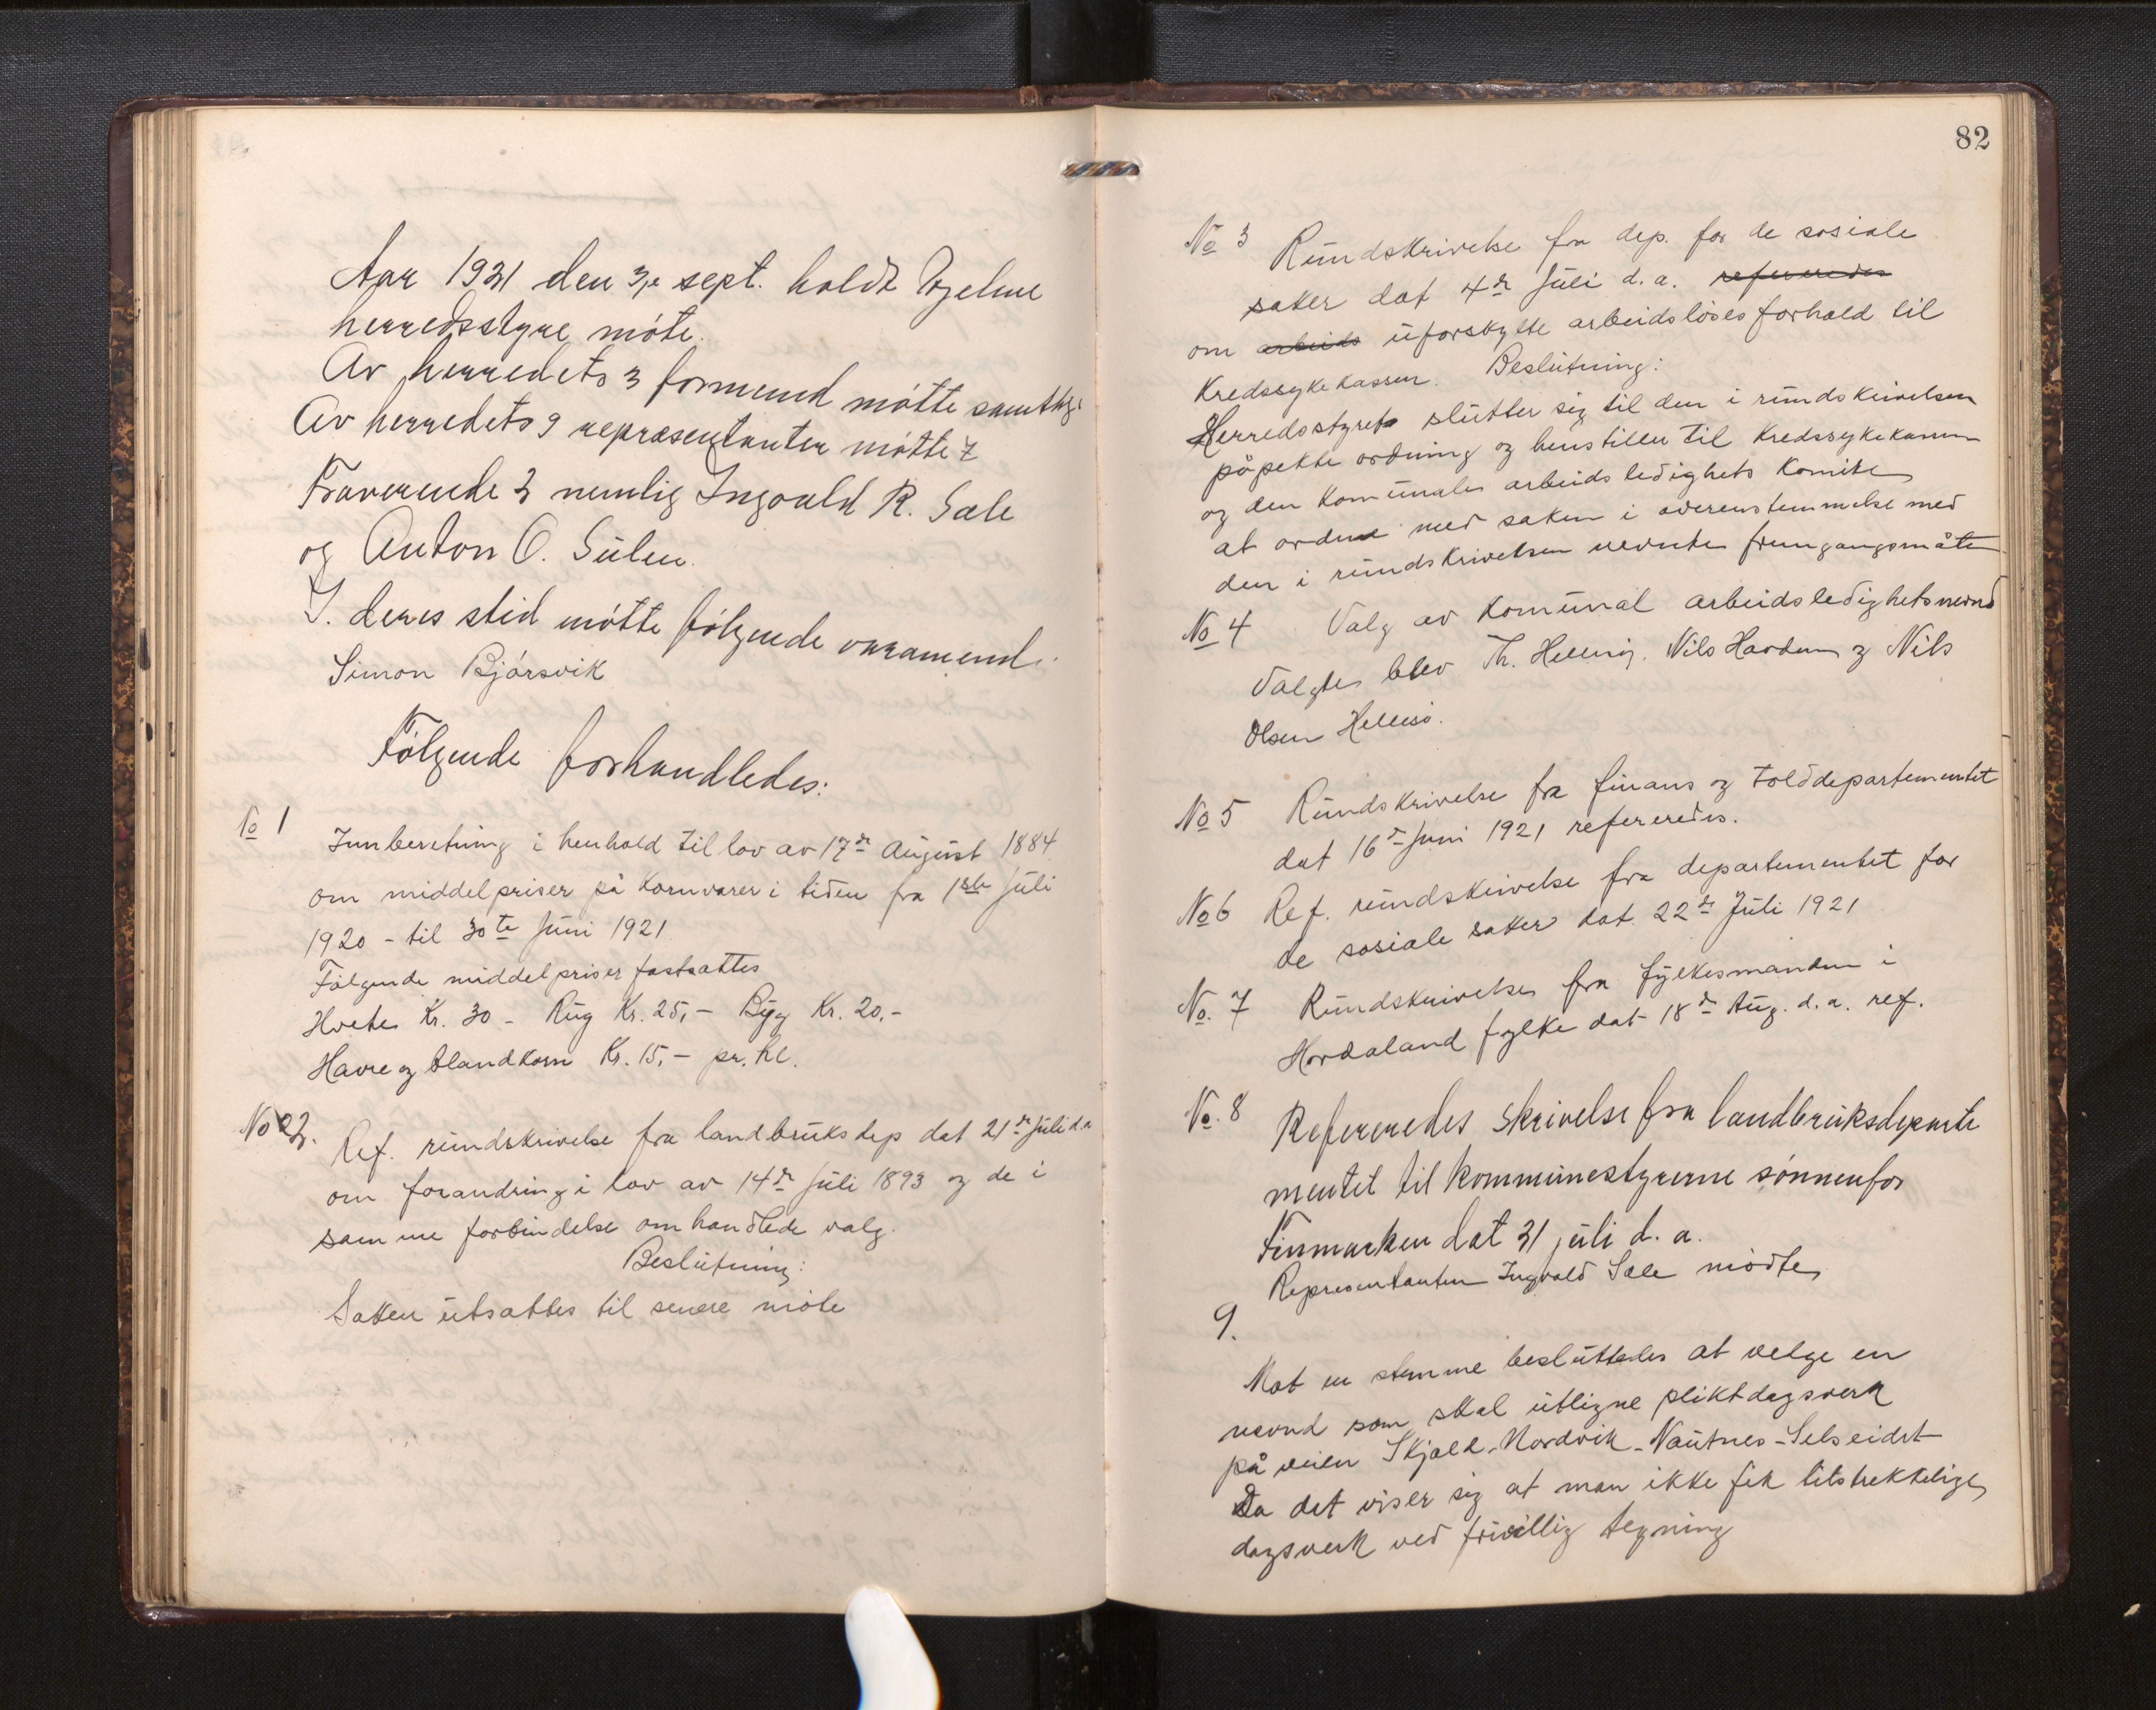 Aar 1921 den 3je sept. holdt Hjelme
herredsstyre møte.
Av herredets 3 formend møtte samtlige
Av herredets 9 repræsentanter møtte 7
Fraverende 2 nemlig Ingvald R. Sæle
og Anton O. Sülen.
I. deres sted møtte følgende varamend.
Simon Bjørsvik
Følgende forhandledes:
No 1
Innberetning i henhold til lov av 17de August 1884
om middelpriser på kornvarer i tiden fra 1ste Juli
1920 - til 30te Juni 1921
Følgende middelpriser fastsattes
Hvete Kr. 30 - Rug Kr. 25,- Byg Kr. 20.-
Havre og blandkorn Kr. 15,- pr. hl.
No 2.
Ref. rundskrivelse fra landbruksdep dat 21de Juli d.a
om forandring i lov av 14de Juli 1893 og de i
samme forbindelse omhandlede valg.
Beslutning:
Saken utsattes til senere møte
82
No 3 Rundskrivelse fra dep. for de sosiale
saker dat 4de Juli d.a. refereredes
om arbeids uforskyltte arbeidsløses forhold til
Kredssykekassen. Beslutning:
Herredsstyret slutter sig til den i rundskrivelsen
påpekte ordning og henstiller til Kredssykekassen
og den Komunale arbeidsledighets Komite
at ordne med saken i overenstemmelse med
den i rundskrivelsen nevnte fremgangsmåte
No 4 Valg av Komunal arbeidsledighetsnevnd
Valgte blev Th. Hellesø. Nils Hardum og Nils
Olsen Hellesø.
No 5 Rundskrivelse fra finans og tolddepartementet
dat 16de Juni 1921 refereredes.
No 6 Ref. rundskrivelse fra departementet for
de sosiale saker dat. 22de Juli 1921
No. 7 Rundskrivelse fra fylkesmanden i
Hordaland fylke dat 18de Aug. d.a. ref.
No. 8 Refereredes skrivelse fra landbruksdeparte
mentet til kommunestyrerne sønnenfor
Finmarken dat 31 juli d. a.
Representanten Ingvald Sæle mødte
9.
Mot en stemme besluttedes at velge en
nevnd som skal utligne pliktdagsverk
på veien Skjold-Nordvik-Nautnes-Selseidet
Da det viser sig at man ikke fik tilstrekkelige
dagsverk ved frivillig tegning